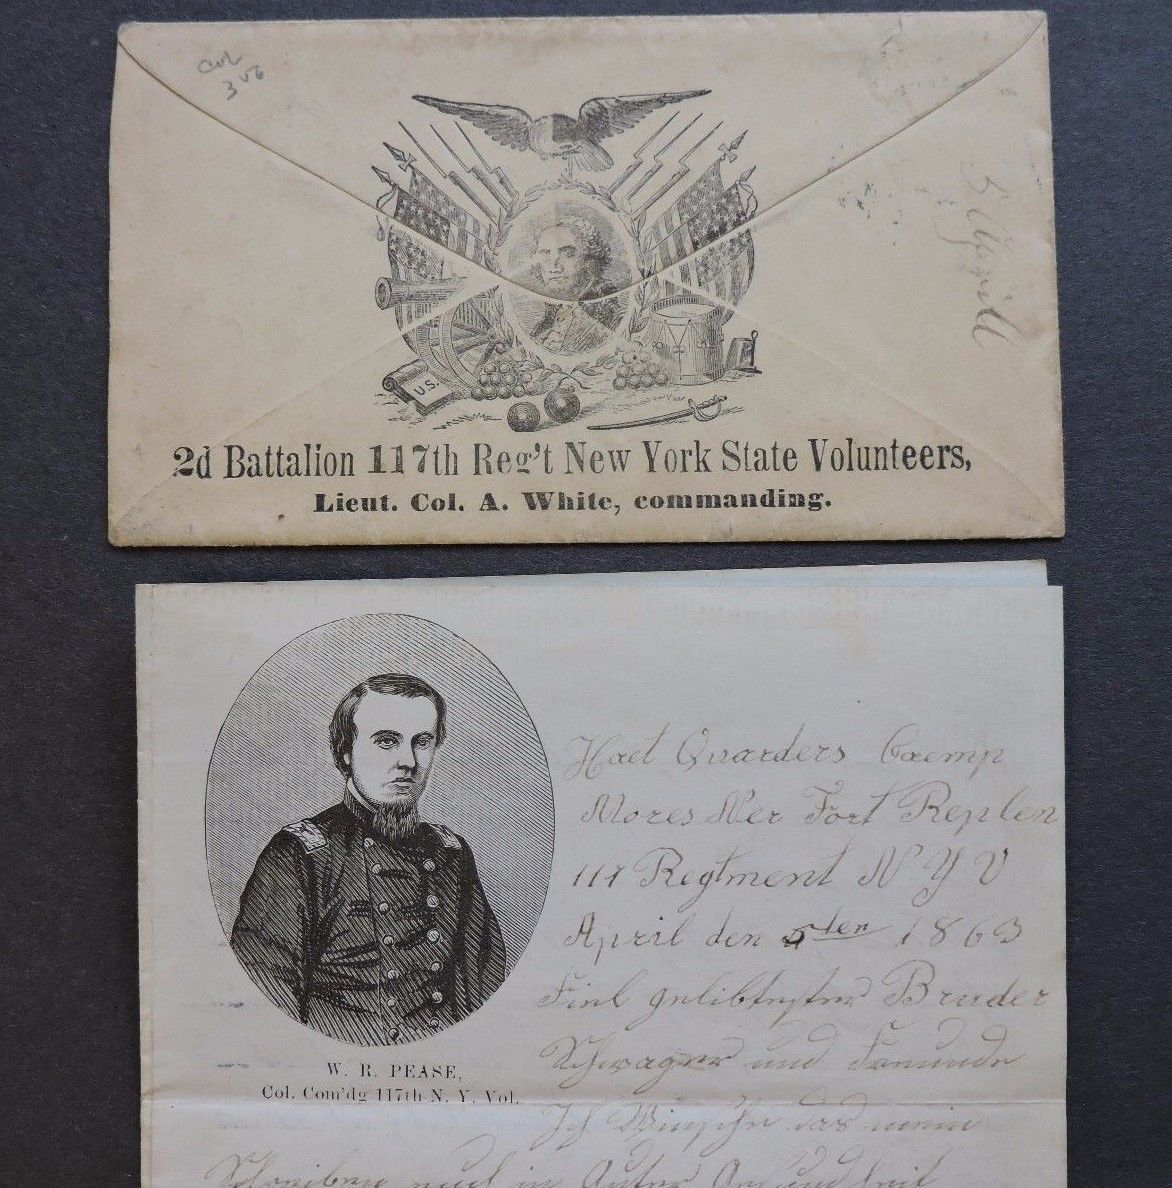 Col
306
U.S.
2d Battalion 117th Reg't New York State Volunteers,
Lieut. Col. A. White, commanding.
W. R. PEASE,
Col. Com'dg 117th N. Y. Vol.
Haet Quarders Caemp
Mores Ner Fort Replen
117 Regtment N Y V
April den 5ten 1863
Fiel gelibtester Bruder
Schwager und Freunde
Ich Winsche das mein
Schreiben euch in Guter Gesundheit